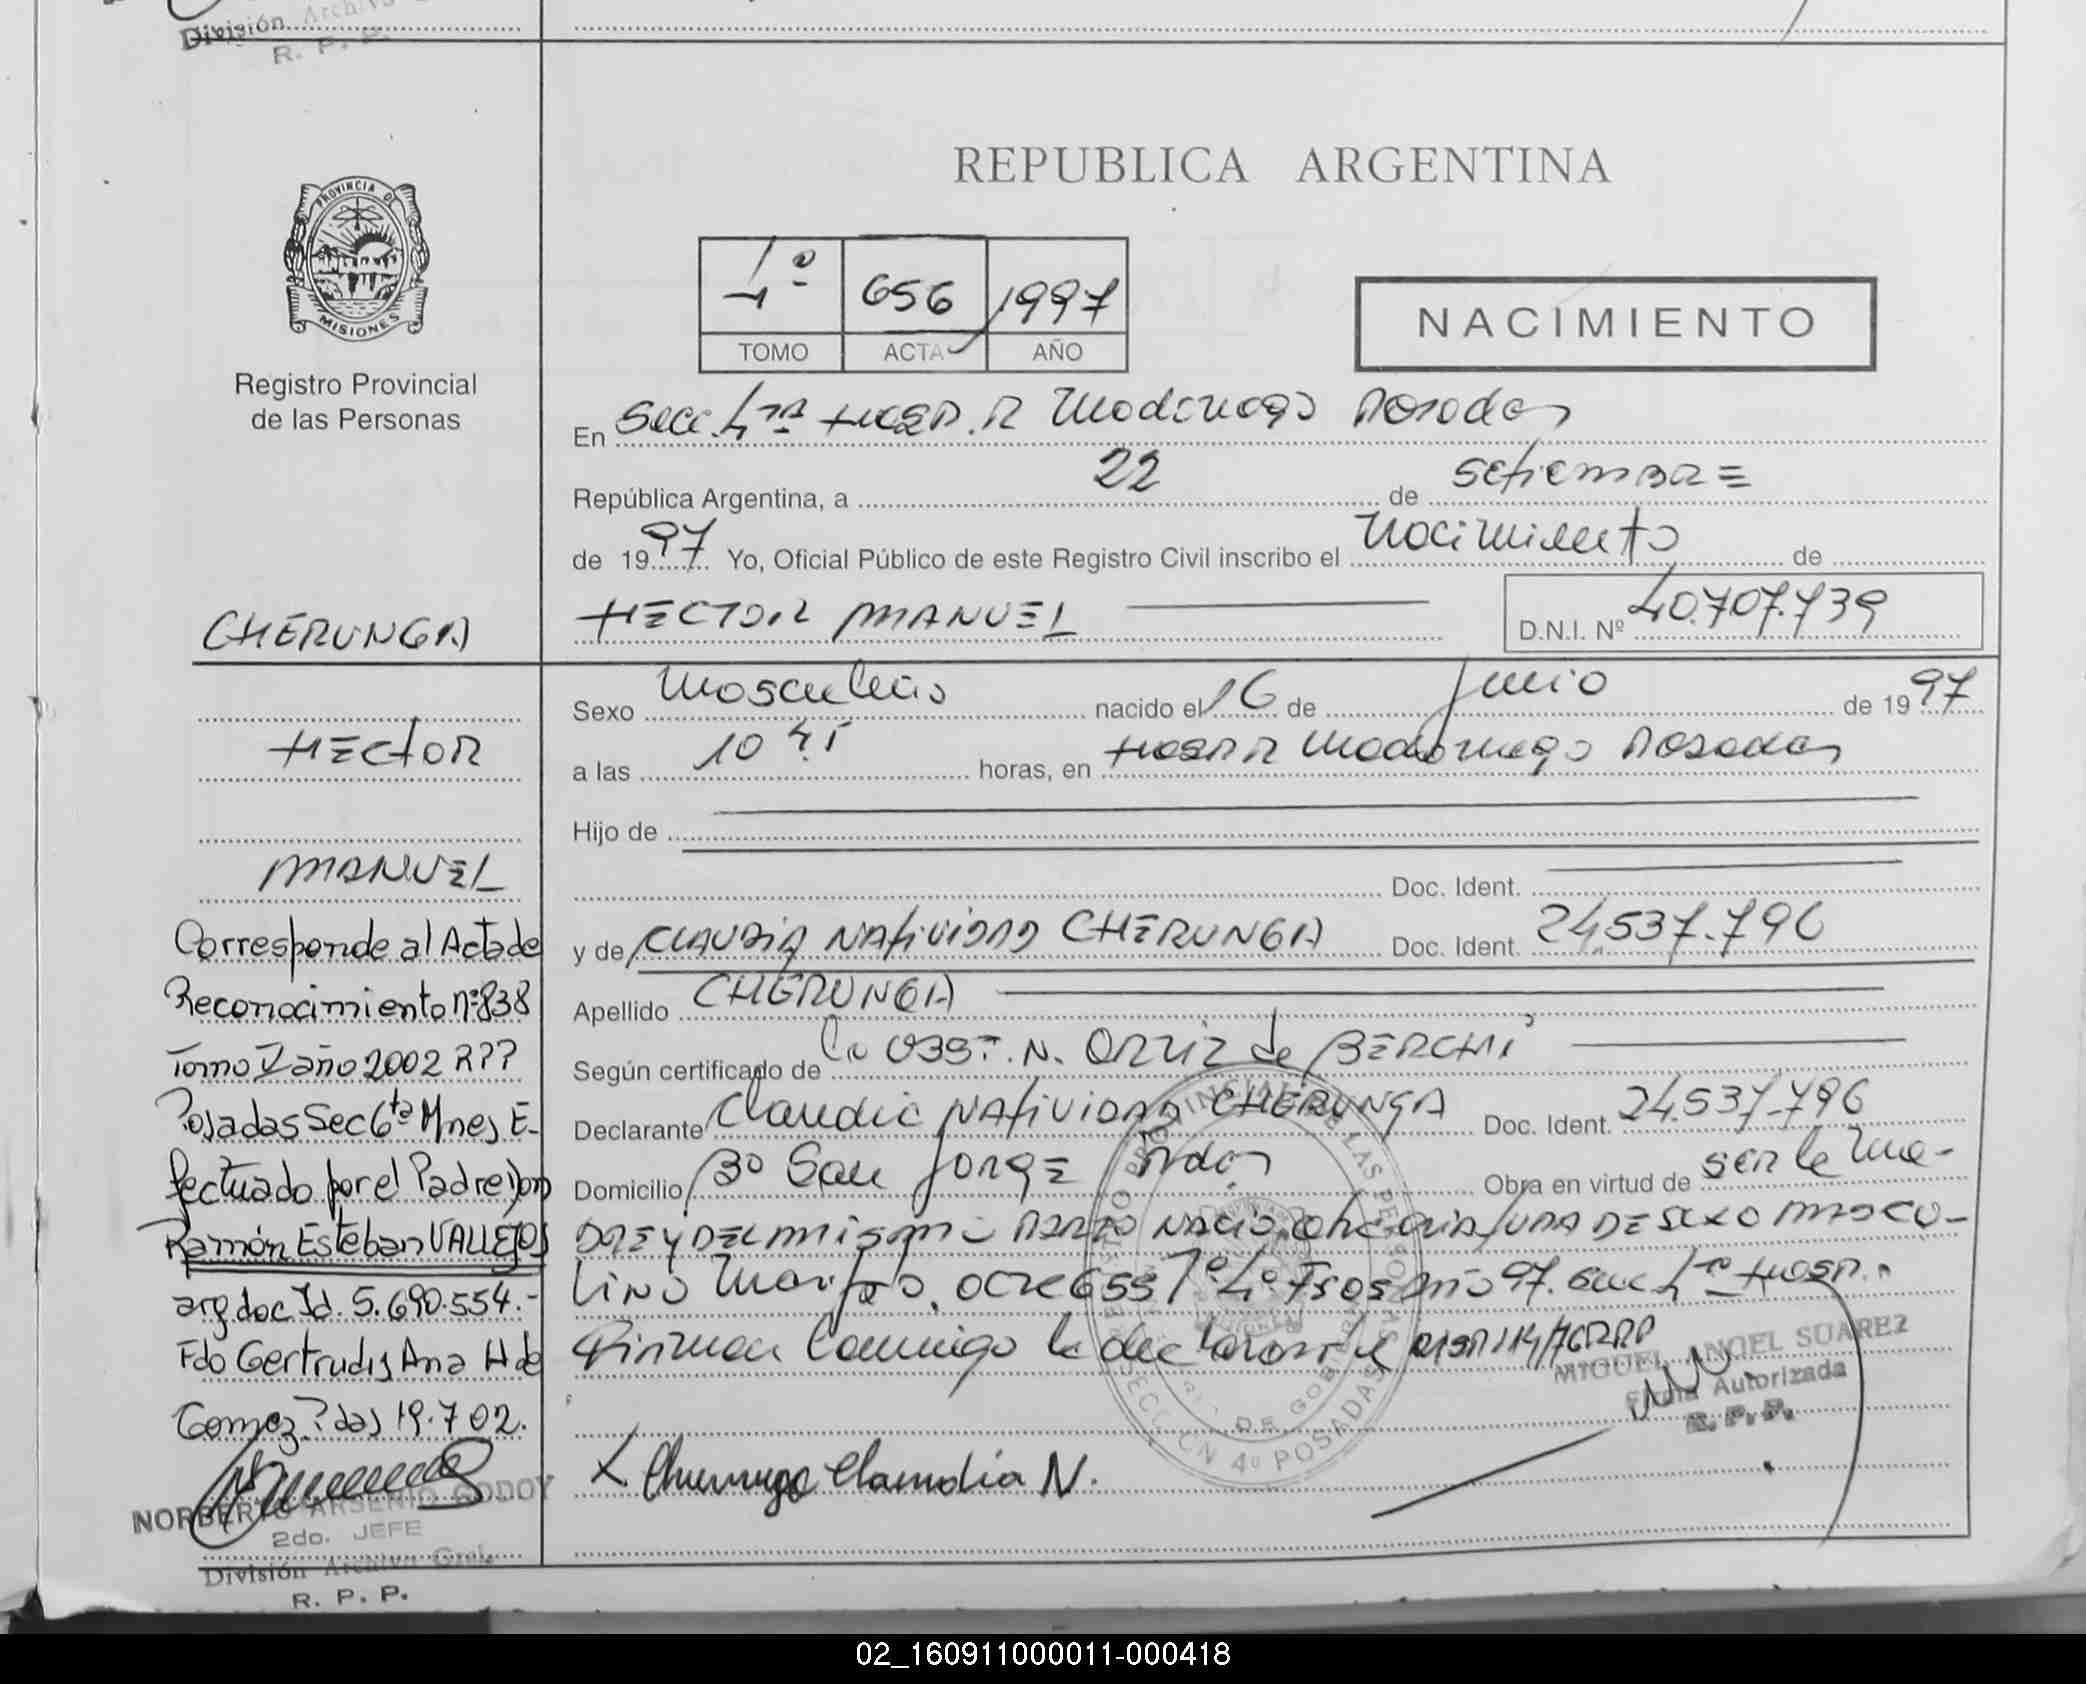 División Archivo
R. P. P.
PROVINCIA DE
MISIONES
Registro Provincial
de las Personas
REPUBLICA ARGENTINA
1º 656 1997
TOMO ACTA AÑO
NACIMIENTO
En Secc. 4ta Hosp. R Madariaga Posadas
República Argentina, a 22 de Setiembre
de 1997 Yo, Oficial Público de este Registro Civil inscribo el Nacimiento de
CHERUNGA
HECTOR MANUEL D.N.I. Nº 40.707.739
Sexo Masculino nacido el 16 de Junio de 1997
a las 10 45 horas, en Hosp R Madariaga Posadas
Hijo de
Doc. Ident.
y de CLAUDIA NATIVIDAD CHERUNGA Doc. Ident. 24.537.796
Apellido CHERUNGA
Según certificado de la OBST. N. ORTIZ de BERCHI
Declarante Claudia NATIVIDAD CHERUNGA Doc. Ident. 24.537.796
Domicilio Bº San Jorge Pdas Obra en virtud de ser la ma-
DRE Y DEL MISMO PARTO NACIO OTRA CRIATURA DE SEXO MASCU-
LINO acta 655 Tº 1º Fsos año 97. Secc 4ta Hosp.
Firman conmigo la declarante
HECTOR
MANUEL
Corresponde al Acta de
Reconocimiento nº 838
Tomo I año 2002 RPP
Posadas Sec 6ta Mnes E-
fectuado por el Padre don
Ramón Esteban VALLEJOS
arg doc Id. 5.690.554.-
Fdo Gertrudis Ana H de
Gomez Pdas 19.7 02.
NORBERTO ARSENIO GODOY
2do. JEFE
División Archivo Gral.
R. P. P.
x Cherunga Claudia N.
MIGUEL ANGEL SUAREZ
Firma Autorizada
R. P. P.
SECCION 4º POSADAS
02_160911000011-000418